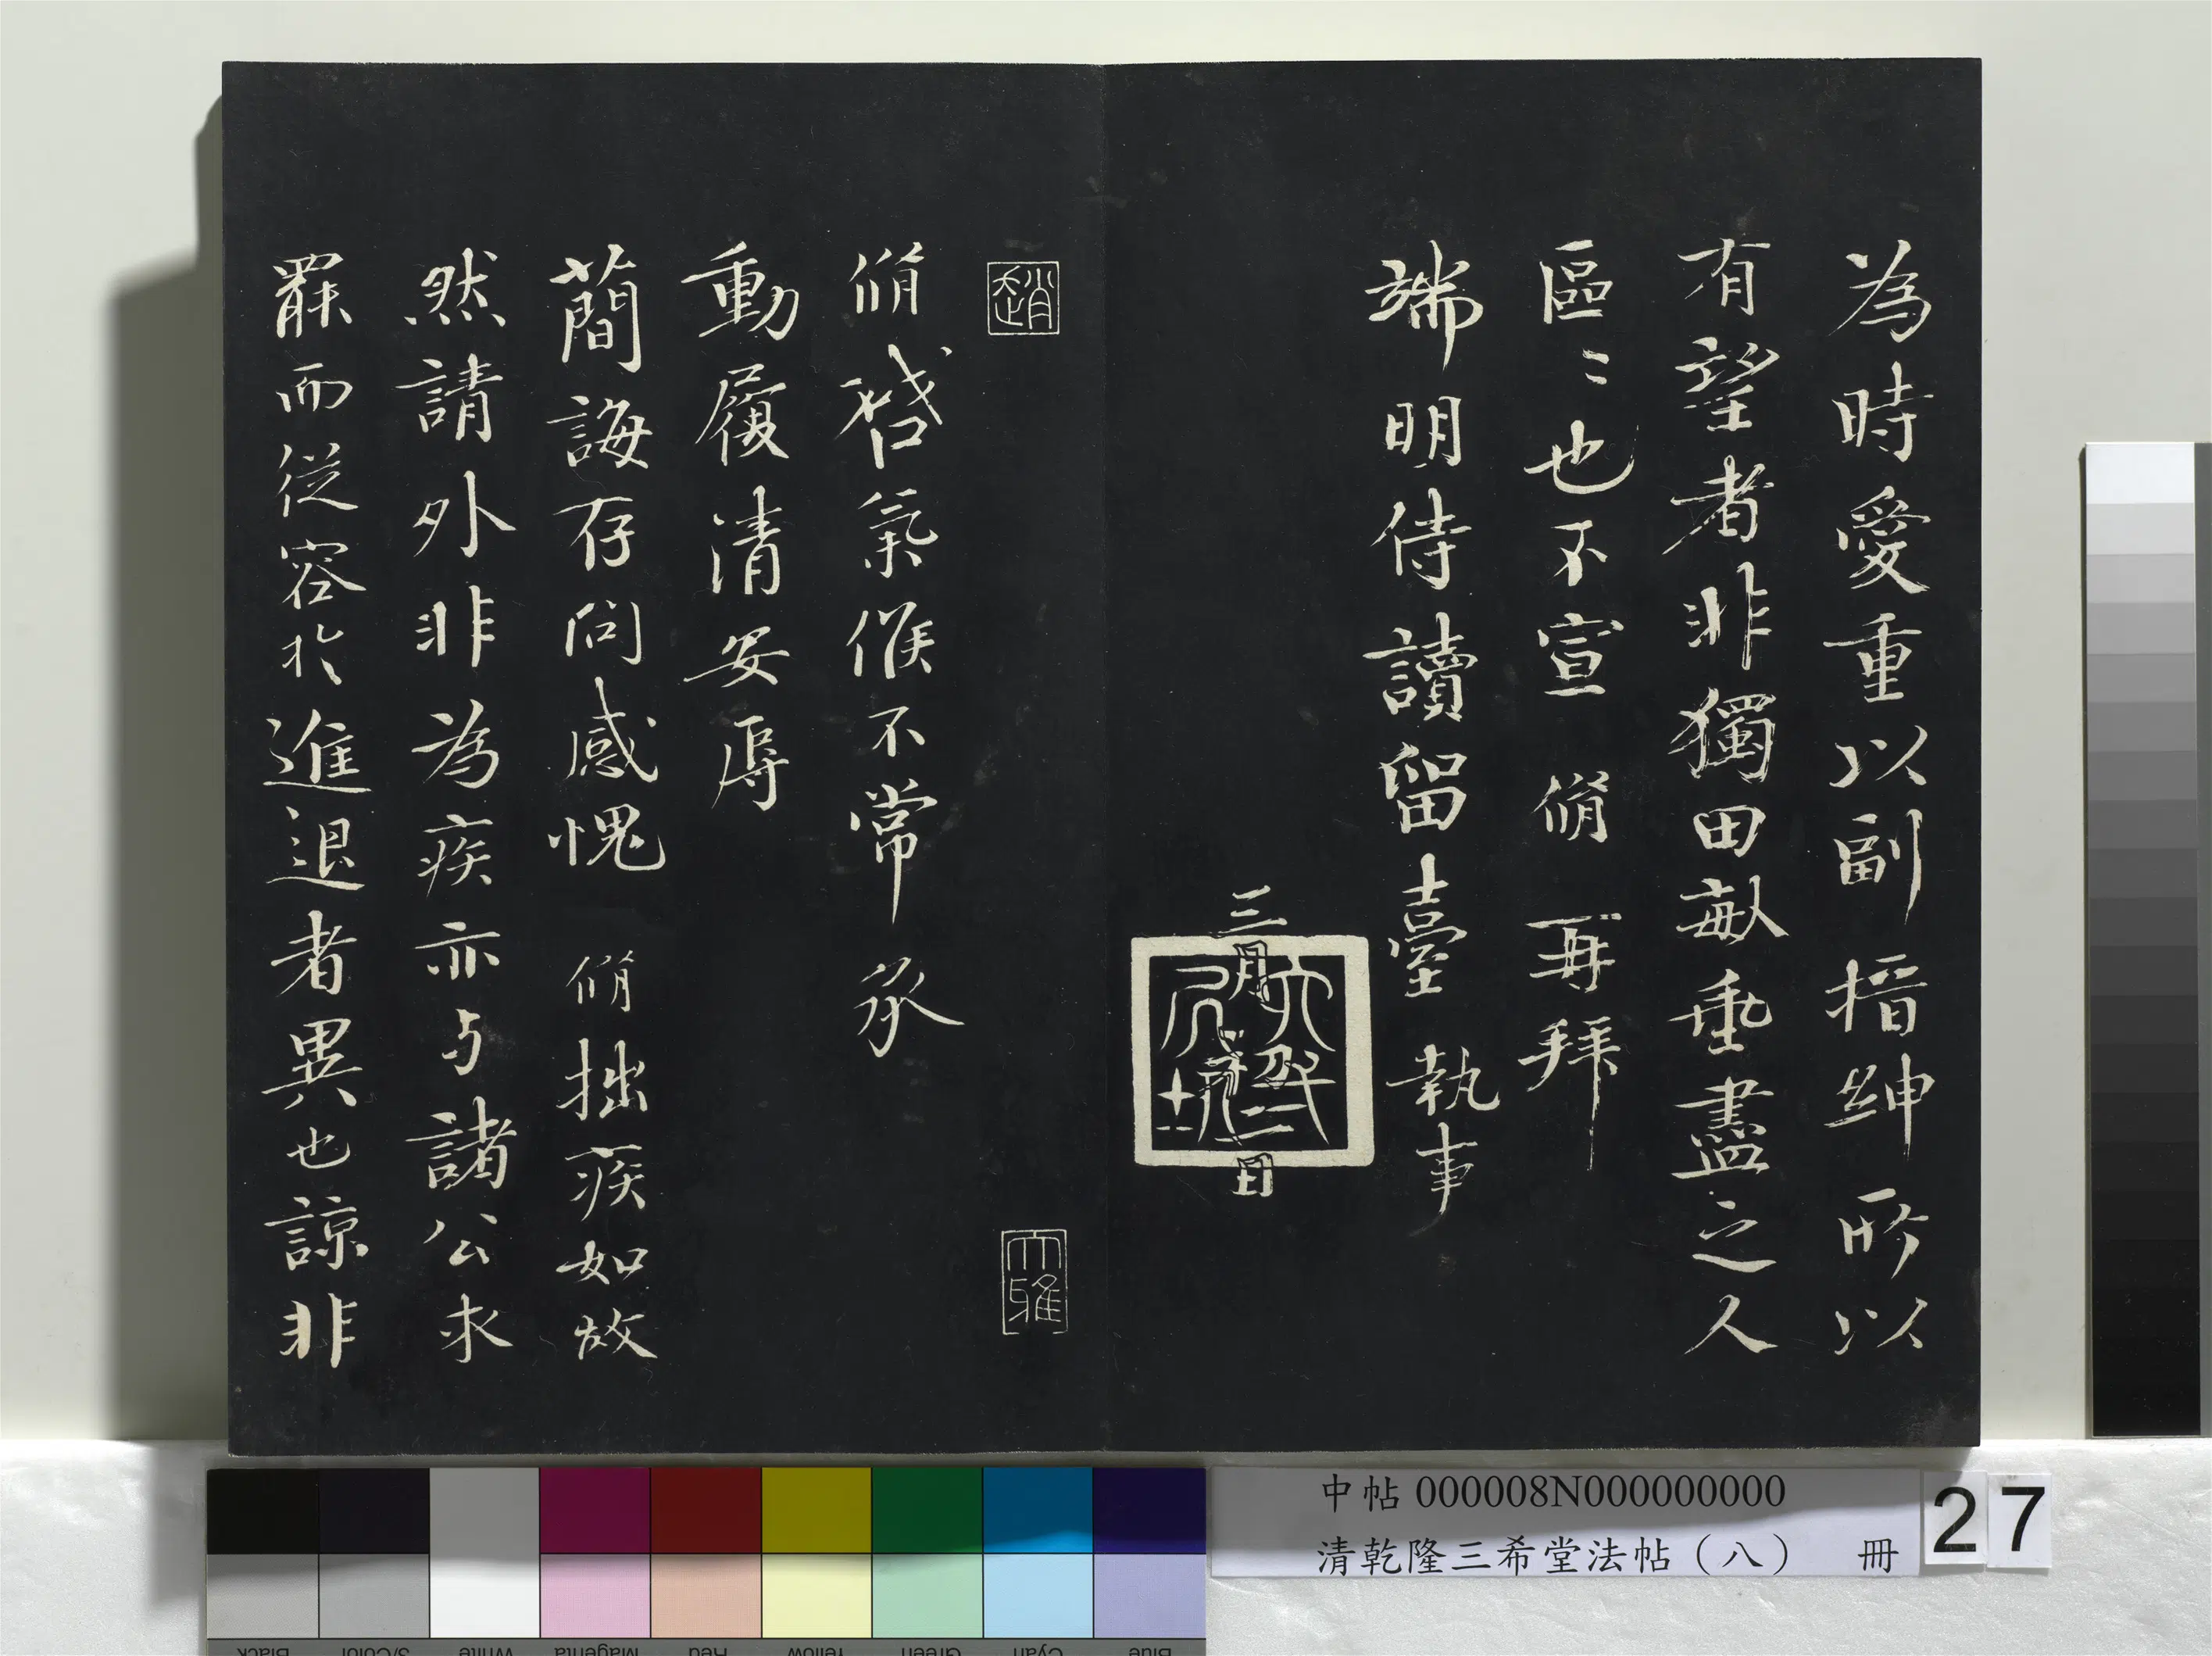 為時愛重以副搢紳所以
有望者非獨田畝垂盡之人
區〻也不宣 脩再拜
端明侍讀留臺 執事
三月初二日
趙
大雅
脩啓氣候不常承
動履清安辱
簡誨存問感愧 脩拙疾如故
然請外非為疾亦与諸公求
罷而從容於進退者異也諒非
中帖 000008N000000000
清乾隆三希堂法帖（八） 冊
27
Black
3/Color
White
Magenta
Red
Yellow
Green
Cyan
Blue